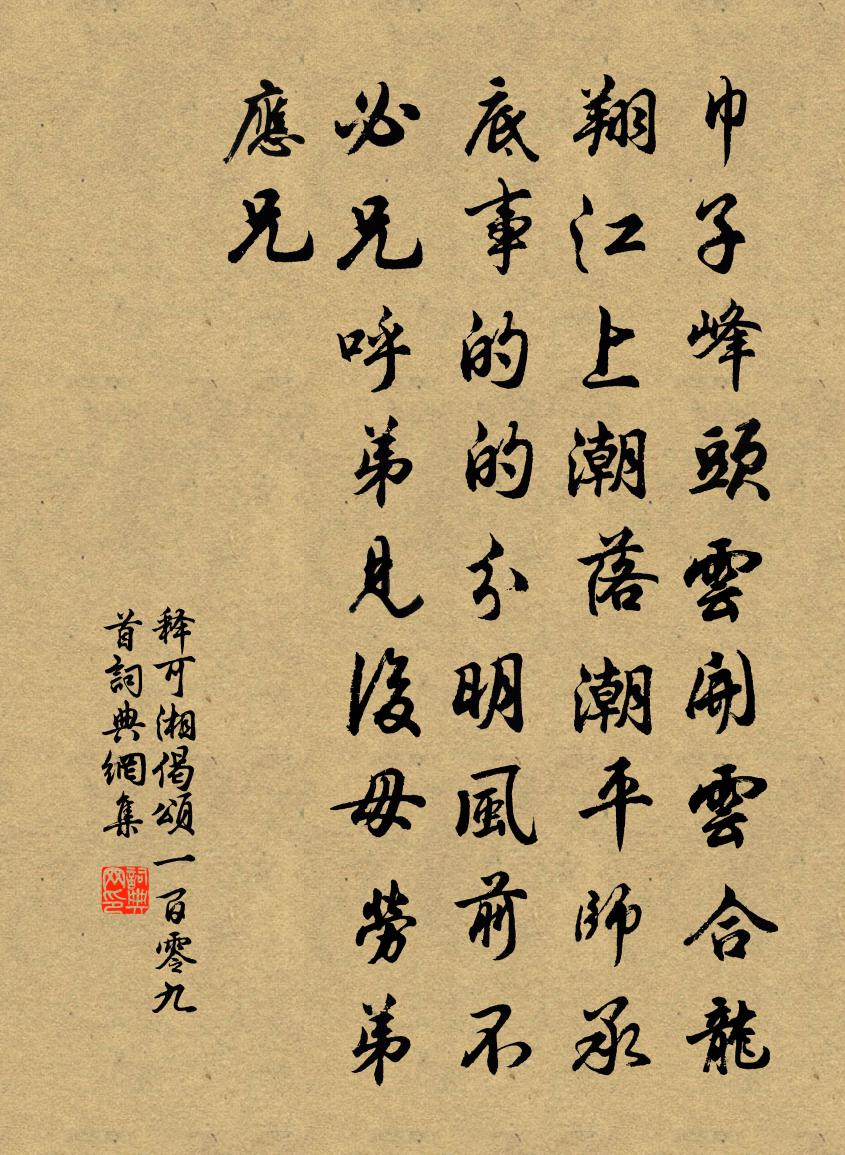 巾子峰頭雲開雲合龍
翔江上潮落潮平師承
底事的的分明風前不
必兄呼弟見後毋勞弟
應兄
释可湘偈頌一百零九
首詞典網集
詞典
网印